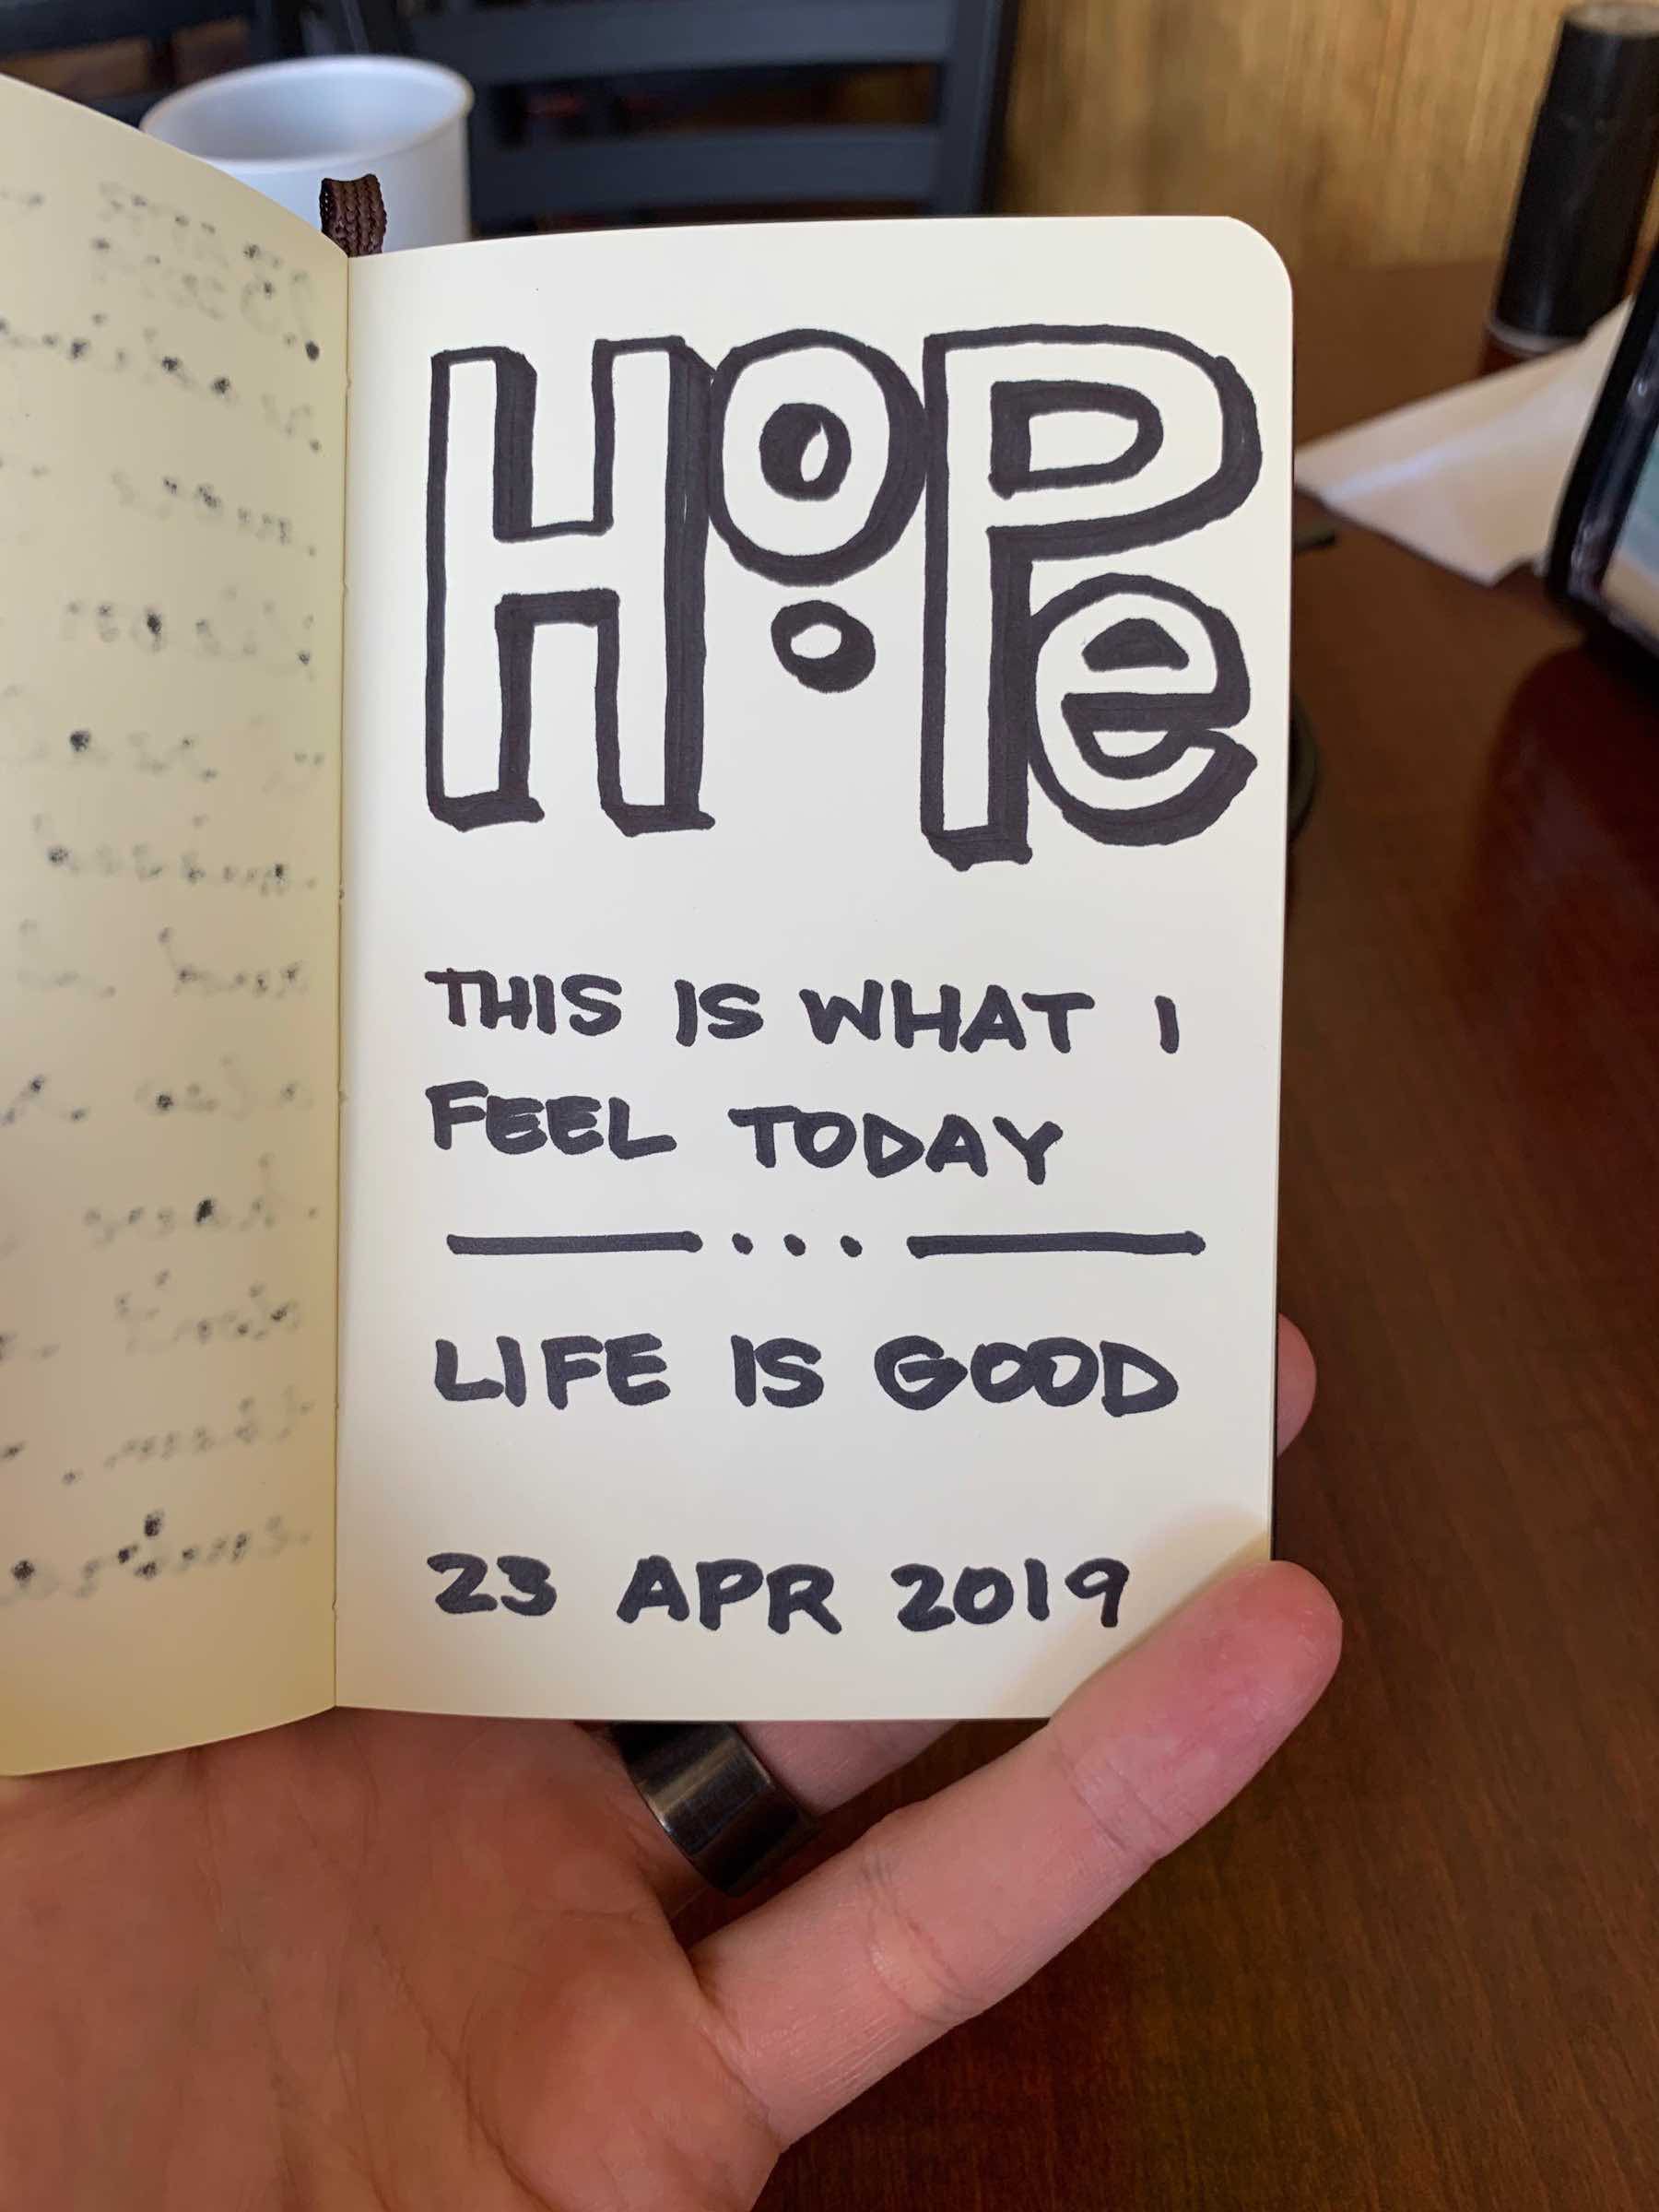 HOPe
THIS IS WHAT I
FEEL TODAY
LIFE IS GOOD
23 APR 2019